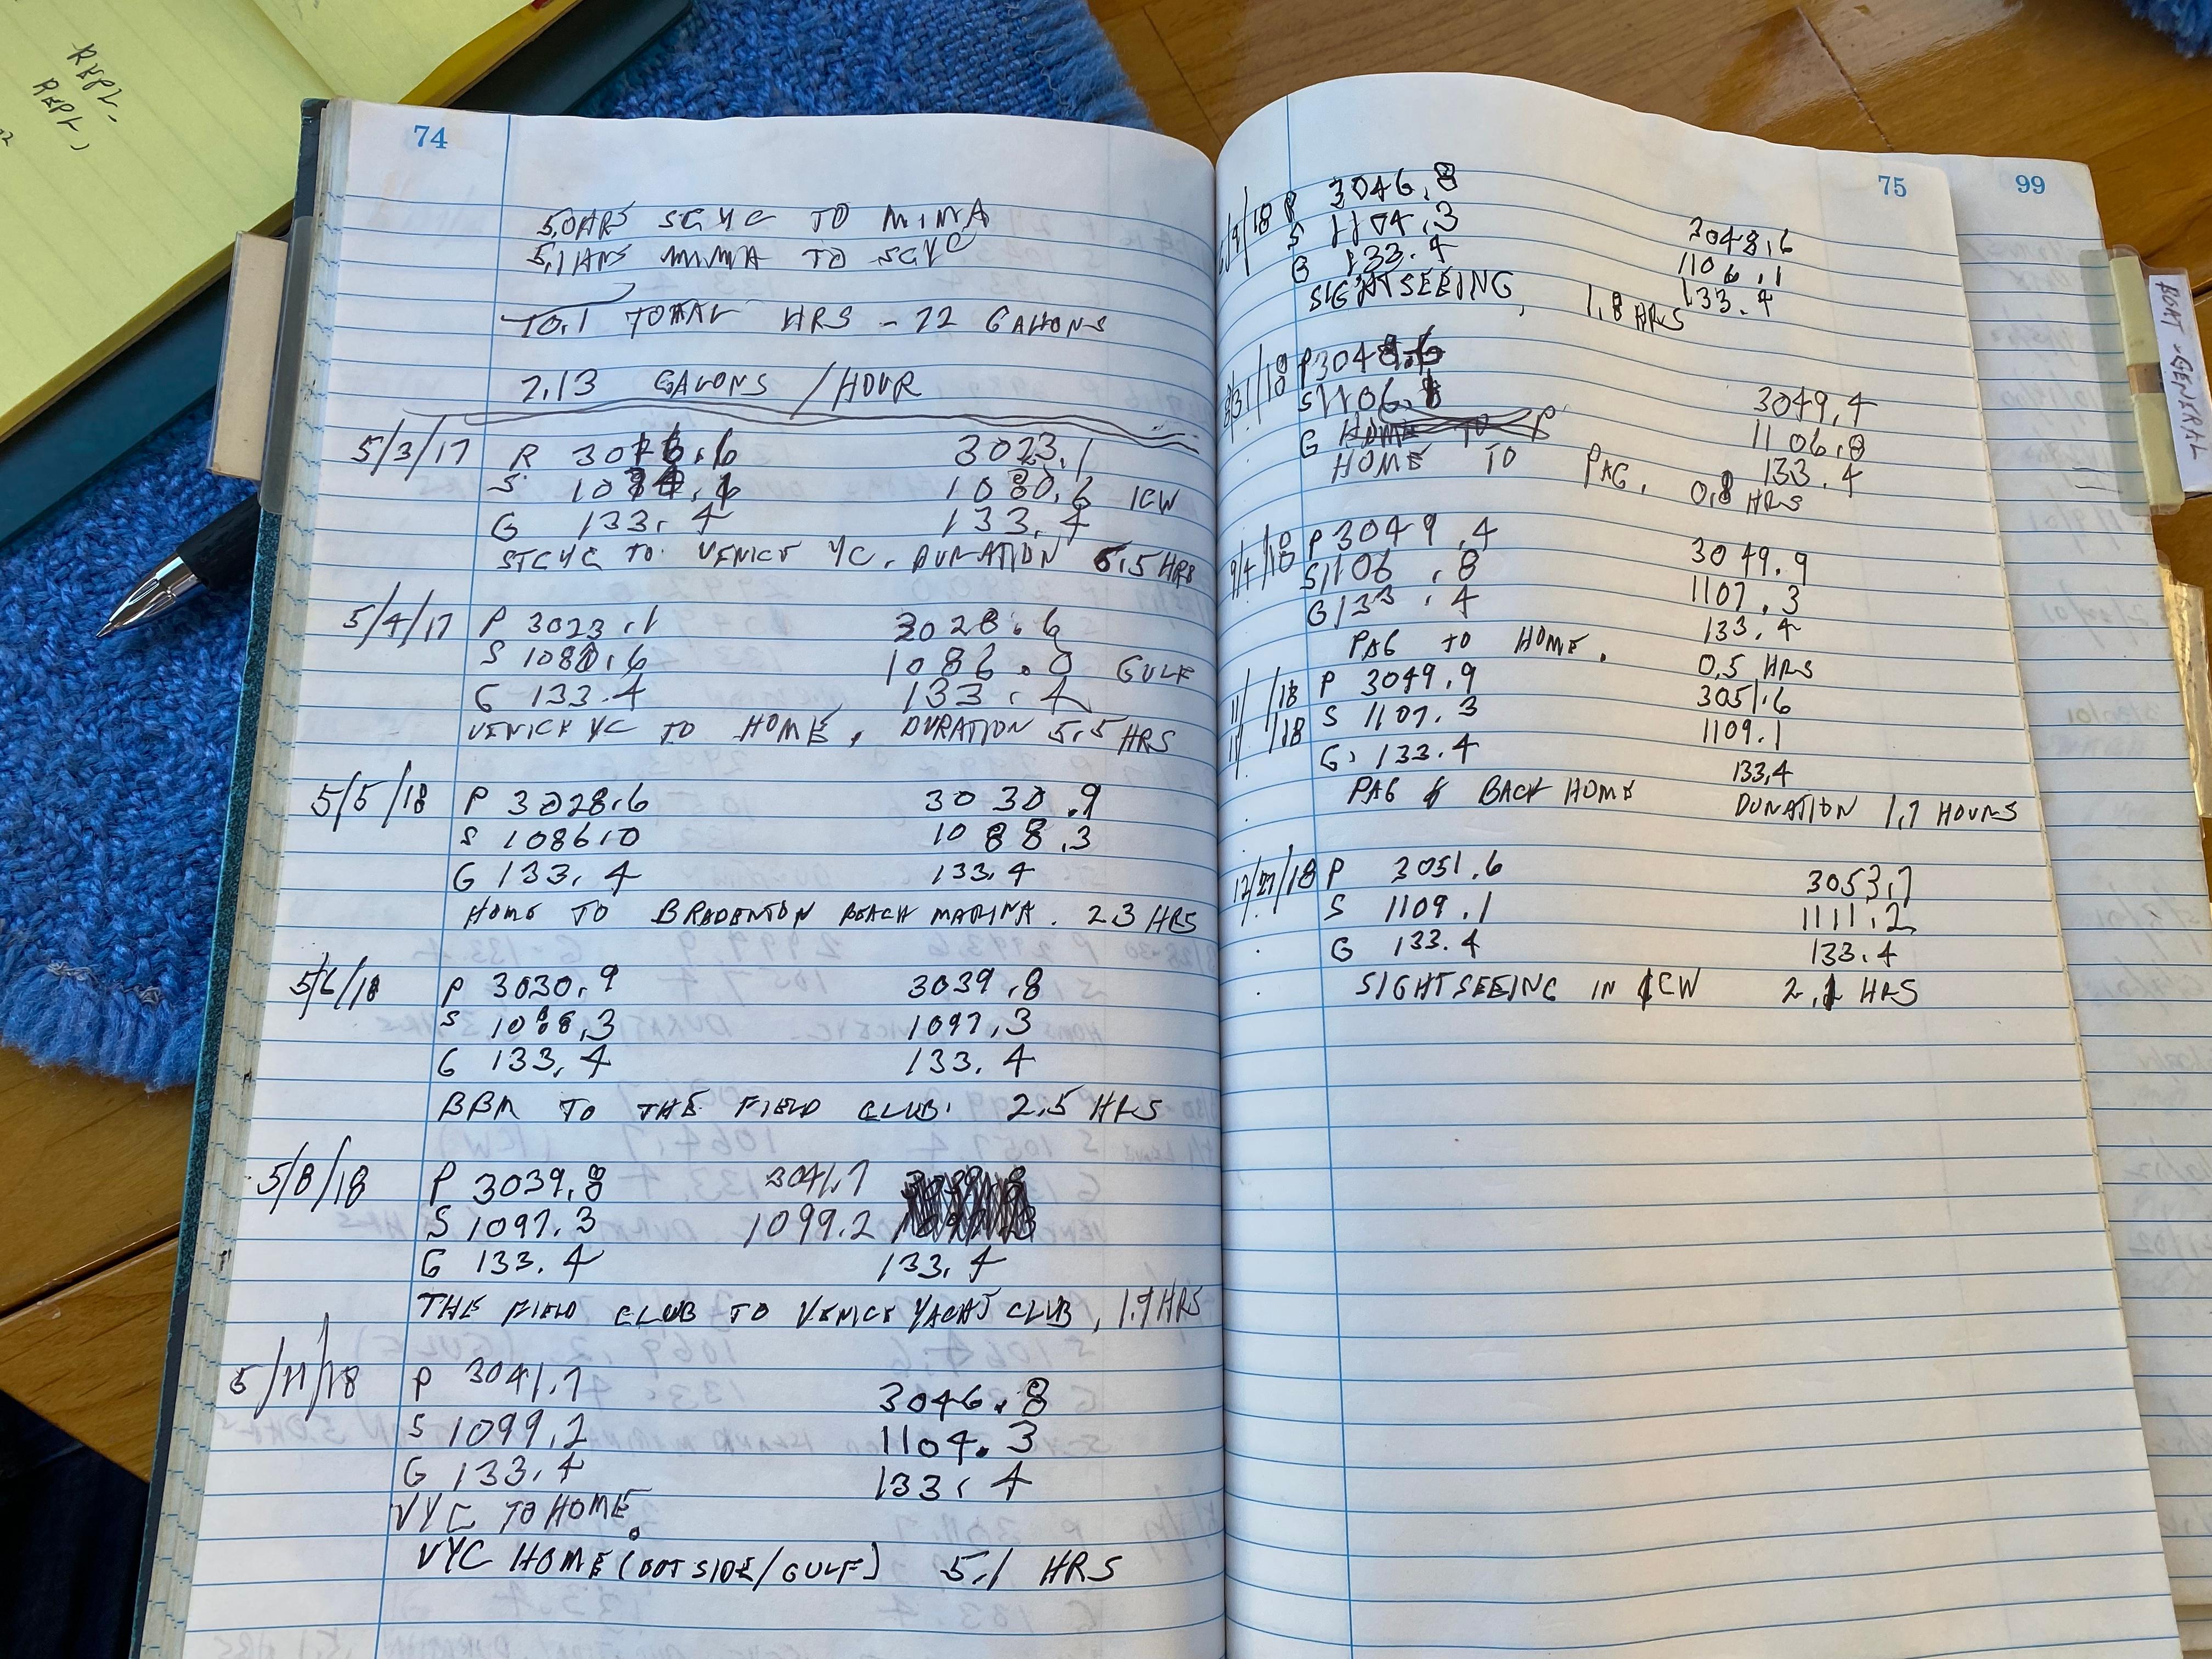 REPL-
REPL,
74
5.0 HRS SGYC TO MIMA
5.1 HRS MIMA TO SGYC
10.1 TOTAL HRS - 22 GALLONS
2.13 GALONS / HOUR
5/3/17 P 3016.6 3023.1
S 1080.6 ICW
G 133.4 133.4
STCYC TO VENICE YC. DURATION 6.5 HRS
5/4/17 P 3023.1 3028.6
S 1080.6 1086.0 GULF
G 133.4 133.4
VENICE YC TO HOME, DURATION 5.5 HRS
5/5/18 P 3028.6 3030.9
S 1086.0 1088.3
G 133.4 133.4
HOME TO BRADENTON BEACH MARINA. 2.3 HRS
5/6/18 P 3030.9 3039.8
S 1088.3 1097.3
G 133.4 133.4
BBM TO THE FIELD CLUB. 2.5 HRS
5/8/18 P 3039.8 3041.7
S 1097.3 1099.2
G 133.4 133.4
THE FIELD CLUB TO VENICE YACHT CLUB, 1.9 HRS
5/11/18 P 3041.7 3046.8
S 1099.2 1104.3
G 133.4 133.4
VYC TO HOME.
VYC HOME (OUTSIDE/GULF) 5.1 HRS
75
/9/18 P 3046.8 3048.6
S 1104.3 1106.1
G 133.4 133.4
SIGHTSEEING, 1.8 HRS
8/31/18 P 3048.6 3049.4
S 1106. 1106.8
G HOME TO P 133.4
HOME TO PAG, 0.8 HRS
9/4/18 P 3049.4 3049.9
S 1106.8 1107.3
G 133.4 133.4
PAG TO HOME. 0.5 HRS
11/ /18 P 3049.9 3051.6
11/ /18 S 1107.3 1109.1
G. 133.4 133.4
PAG & BACK HOME DURATION 1.7 HOURS
12/27/18 P 3051.6 3053.7
S 1109.1 1111.2
G 133.4 133.4
SIGHTSEEING IN ICW 2.1 HRS
99
BOAT - GENERAL